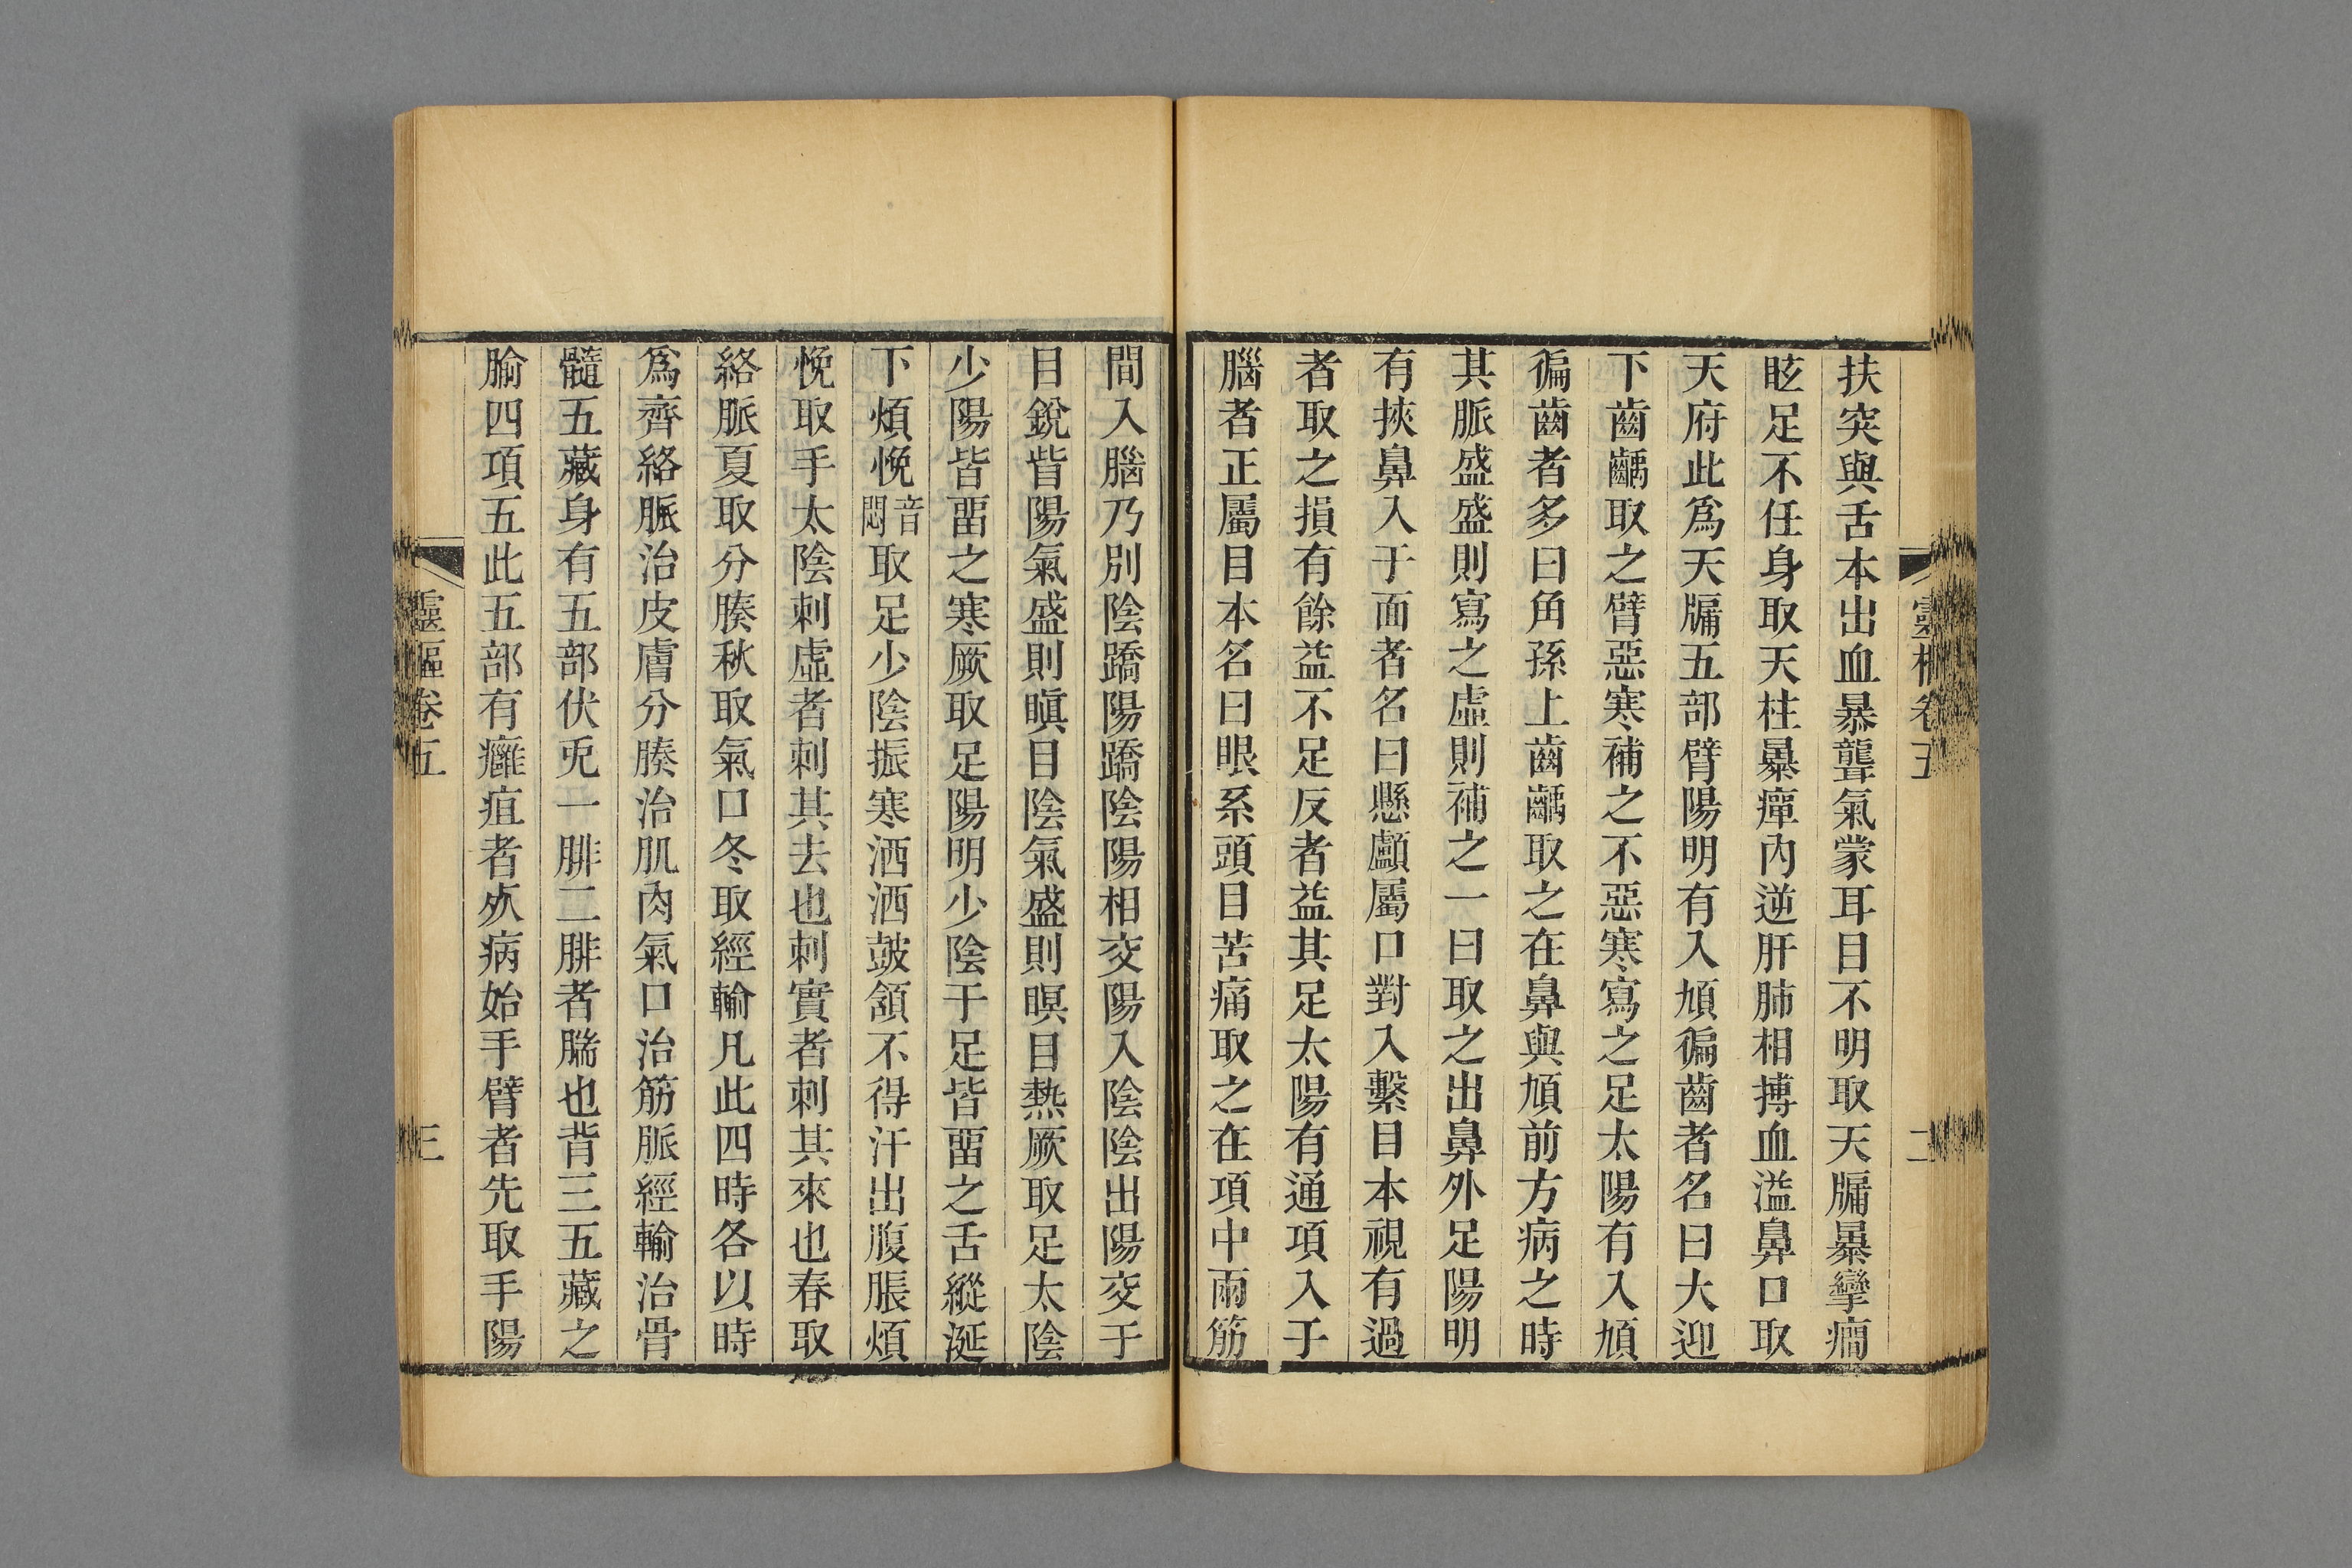 扶突與舌本出血暴聾氣蒙耳目不明取天牖暴攣癇
眩足不任身取天柱暴癉內逆肝肺相搏血溢鼻口取
天府此爲天牖五部臂陽明有入頄徧齒者名曰大迎
下齒齲取之臂惡寒補之不惡寒寫之足太陽有入頄
徧齒者多曰角孫上齒齲取之在鼻與頄前方病之時
其脈盛盛則寫之虛則補之一曰取之出鼻外足陽明
有挾鼻入于面者名曰懸顱屬口對入繫目本視有過
者取之損有餘益不足反者益其足太陽有通項入于
腦者正屬目本名曰眼系頭目苦痛取之在項中兩筋
間入腦乃別陰蹻陽蹻陰陽相交陽入陰陰出陽交于
目銳眥陽氣盛則瞋目陰氣盛則暝目熱厥取足太陰
少陽皆畱之寒厥取足陽明少陰于足皆畱之舌縱涎
下煩悗音悶取足少陰振寒洒洒鼓頷不得汗出腹脹煩
悗取手太陰刺虛者刺其去也刺實者刺其來也春取
絡脈夏取分腠秋取氣口冬取經輸凡此四時各以時
爲齊絡脈治皮膚分腠治肌肉氣口治筋脈經輸治骨
髓五藏身有五部伏兎一腓二腓者腨也背三五藏之
腧四項五此五部有癰疽者死病始手臂者先取手陽
靈樞卷五
三
靈樞卷五
二